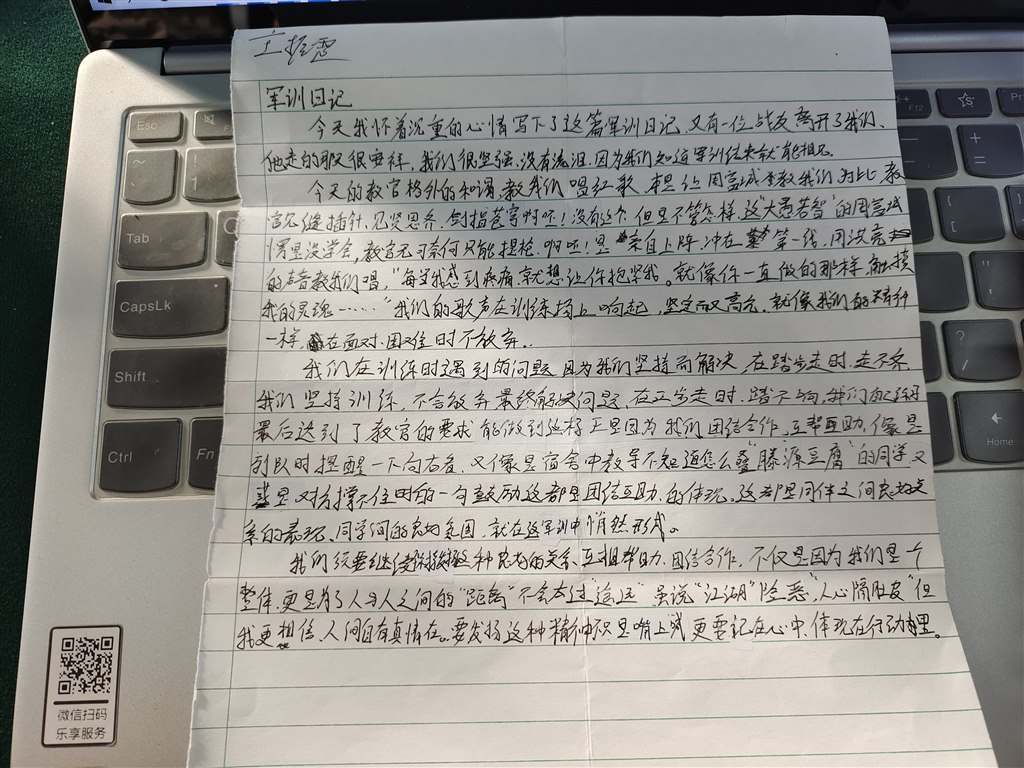 军训日记
今天我怀着沉重的心情写下了这篇军训日记，又有一位战友离开了我们、
他走的很，我们很坚强，没有流泪，因为我们知道军训结束就能相见。
今天的教官格外的和谐，教我们唱红歌，本想让周富城来教我们，为此，教
官见缝插针，见贤思齐，剑指苍穹啊呸！没有这个，但是不管怎样，这"大愚若智"的周富城
愣是没学会，教官无可奈何只能提枪，啊呸！是亲自上阵，冲在第一线，用洪亮
的声音教我们唱，"每当我感到疼痛就想让你抱紧我。就像你一直做的那样，触摸
我的灵魂……"我们的歌声在训练场上响起，坚定而又高亢。就像我们的精神
一样，在面对困难时不放弃。
我们在训练时遇到的问题因为我们坚持而解决，在踏步走时，走不齐，
我们坚持训练，不言放弃最终解决问题，在正步走时，踏不响，我们加练
最后达到了教官的要求能做到这样正是因为我们团结合作，互帮互助，像是
列队时提醒一下向右看，又像是宿舍中教导不知道怎么叠"藤源豆腐"的同学，又
是对方撑不住时的一句鼓励这都是团结互助的体现。这都是同伴之间友好关
系的表现，同学间的氛围，就在这军训中悄然形成。
我们须要继续保持这种友好的关系，互相帮助，团结合作，不仅是因为我们是一个
整体，更是为了人与人之间的"距离"不会太过"遥远"虽说"江湖"险恶，"人心隔肚皮"但
我更相信，人间自有真情在。要发扬这种精神不只是嘴上说更要记在心中，体现在行动里。
Esc
F12
Pr
Tab
Q
CapsLk
Shift
Ctrl
Fn
Home
微信扫码
乐享服务